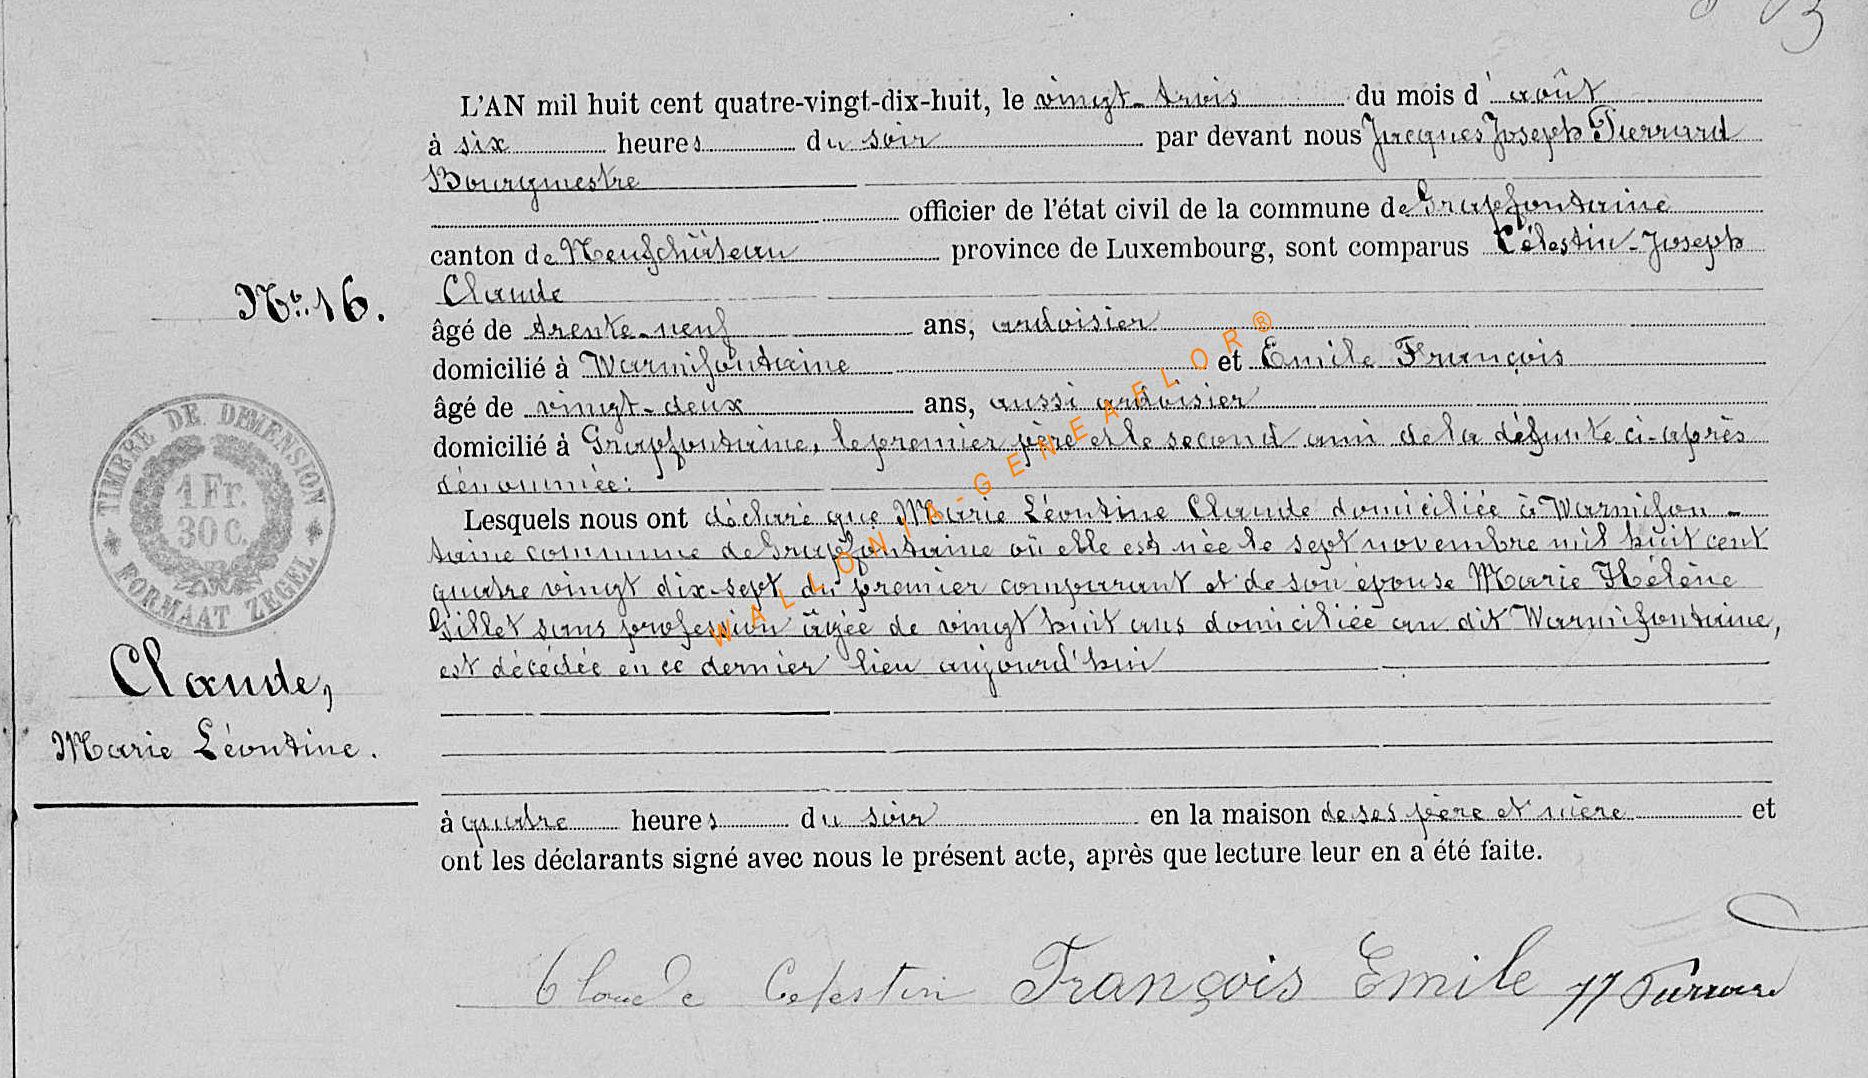 L'AN mil huit cent quatre-vingt-dix-huit, le vingt-trois du mois d'août
à six heures du soir par devant nous Jacques Joseph Pierrard
Bourgmestre
officier de l'état civil de la commune de Grapfontaine
canton de Neufchâteau province de Luxembourg, sont comparus Célestin-Joseph
Claude
âgé de trente-neuf ans, ardoisier
domicilié à Warmifontaine et Emile François
âgé de vingt-deux ans, aussi ardoisier
domicilié à Grapfontaine, le premier père et le second ami de la défunte ci-après
dénommée:
Lesquels nous ont déclaré que Marie Léontine Claude domiciliée à Warmifon-
taine commune de Grapfontaine où elle est née le sept novembre mil huit cent
quatre vingt dix-sept du premier comparant et de son épouse Marie Hélène
Gillet sans profession âgée de vingt huit ans domiciliée au dit Warmifontaine,
est décédée en ce dernier lieu aujourd'hui
à quatre heures du soir en la maison de ses père et mère et
ont les déclarants signé avec nous le présent acte, après que lecture leur en a été faite.
No. 16.
TIMBRE DE DIMENSION
1 Fr.
30 C.
FORMAAT ZEGEL
Claude,
Marie Léontine.
WALLONIA-GENEAFLOR®
Claude Celestin François Emile JJ Pierrard